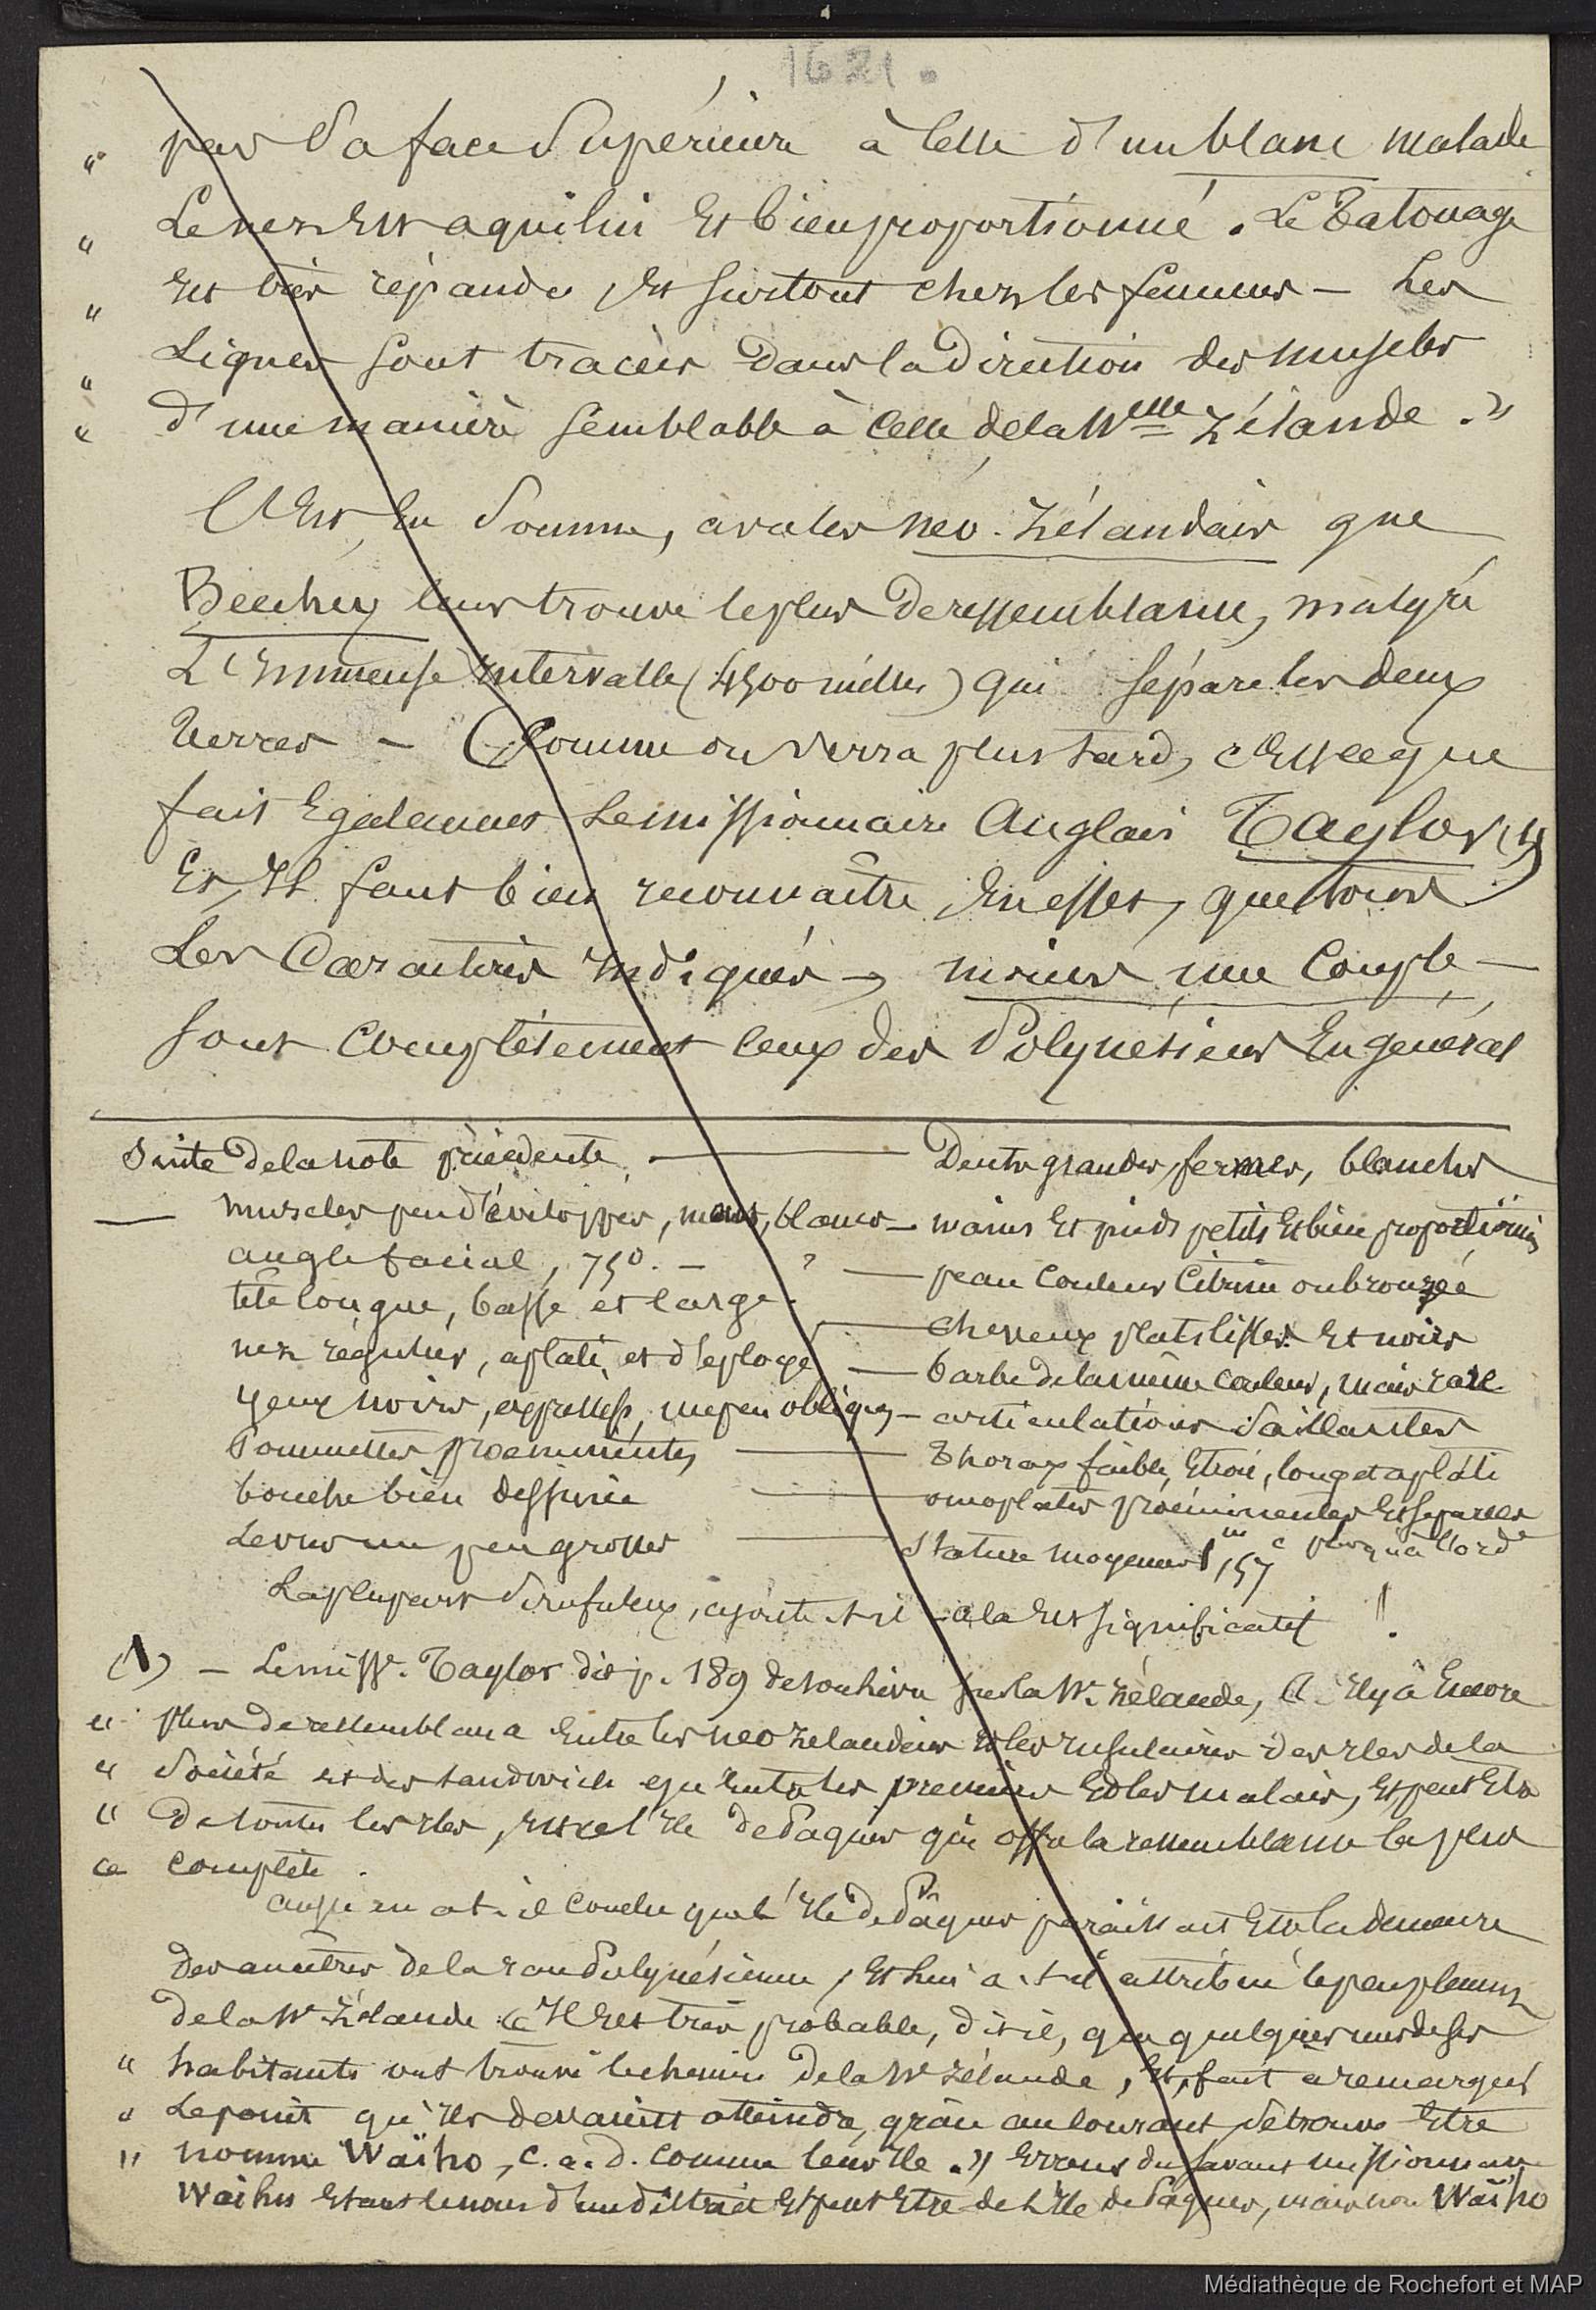 1621.
" par sa face supérieure à celle d'un blanc malade
" Le nez est aquilin et bien proportionné. Le Tatouage
" est très répandu, et surtout chez les femmes — Les
" Lignes sont tracées dans la direction des muscles
" d'une manière semblable à celle de la Nelle Zélande. »
C'est, en somme, avec les néo-Zélandais que
Beechey leur trouve le plus de ressemblance, malgré
L'immense intervalle (4500 milles) qui sépare les deux
terres — Comme on verra plus tard, c'est ce que
fait Egalement Le missionnaire Anglais Taylor (1)
Et, Il faut bien reconnaître, en effet, que tous
Les Caractères indiqués —, moins une couple —
sont complètement ceux des Polynésiens En général
Suite de la note précédente. — Dents grandes, fermes, blanches
— muscles peu développés, mous, blancs — mains et pieds petits et bien proportionnés
angle facial, 75°. — ? — peau couleur citrine ou bronzée
tête longue, basse et large. — cheveux plats lisses et noirs
nez régulier, aplati et — barbe de la même couleur, mais rare
yeux noirs, expressifs, un peu obliques — articulations saillantes
Pommettes proéminentes — Thorax faible, étroit, long et aplati
bouche bien dessinée — omoplates proéminentes et séparées
Levres un peu grosses — Stature moyenne 1m,57c
La plupart scrofuleux, ajoute-t-il — cela est significatif !
(1) — Le miss. Taylor dit p. 189 de son livre sur la Nle Zélande, « Il y a Encore
" plus de ressemblance Entre les neo zelandais et les insulaires des Iles de la
" Société et des Sandwich qu'entre les premiers et les malais, et peut être
" De toutes les Iles, est-ce l'Ile de Paques qui offre la ressemblance la plus
" complète.
aussi en a-t-il conclu que l'Ile de Pâques paraissait être la demeure
des ancêtres de la race Polynésienne, et lui a-t-il attribué le peuplement
de la Nle Zélande « Il est très probable, dit-il, que quelques uns de ses
" habitants ont trouvé le chemin de la Nle Zélande, et, fait à remarquer
" Le point qu'ils devaient atteindre, grâce au courant, se trouve Etre
" nommé Waïho, c.a.d. comme leur Ile. » Erreur du savant missionnaire
Waihu étant le nom d'un district et peut être de l'Ile de Paques, mais non Waïho
Médiathèque de Rochefort et MAP